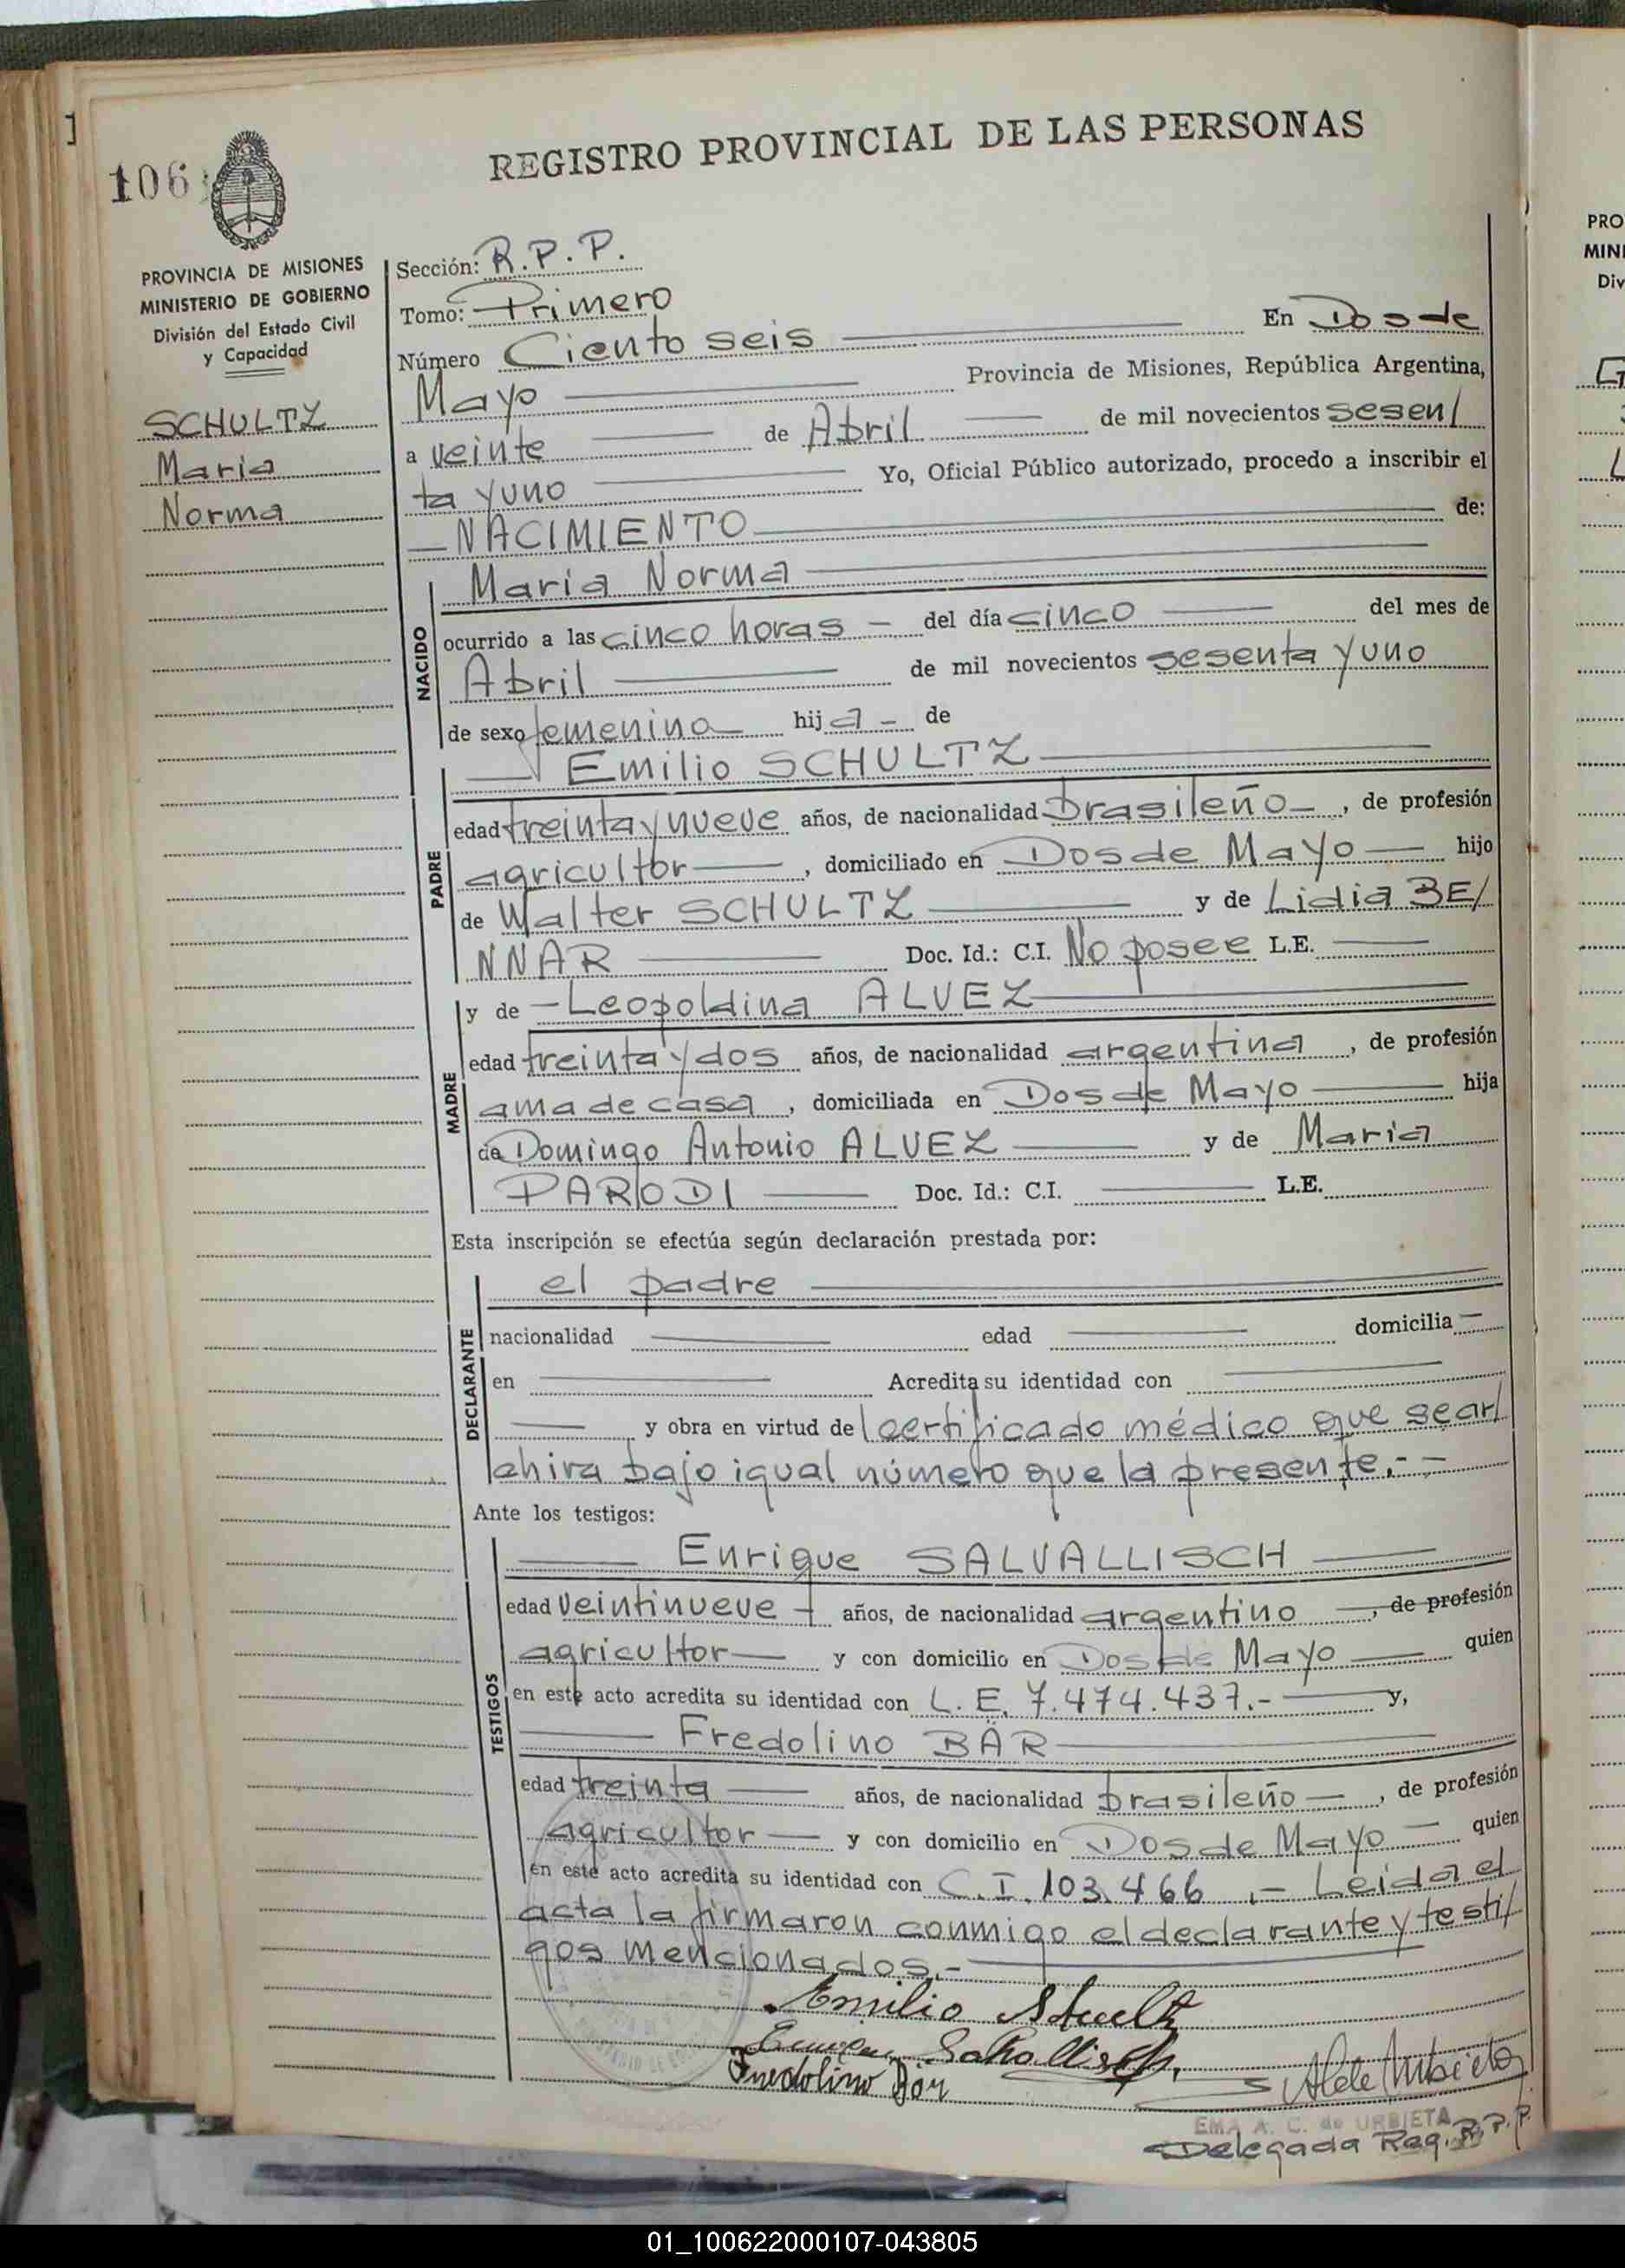 106
REGISTRO PROVINCIAL DE LAS PERSONAS
PROVINCIA DE MISIONES
MINISTERIO DE GOBIERNO
División del Estado Civil
y Capacidad
SCHULTZ
Maria
Norma
Sección: R.P.P.
Tomo: Primero
Número Ciento seis En Dos de
Mayo Provincia de Misiones, República Argentina,
a veinte de Abril de mil novecientos sesen/
ta y uno Yo, Oficial Público autorizado, procedo a inscribir el
NACIMIENTO de:
NACIDO
Maria Norma
ocurrido a las cinco horas - del día cinco del mes de
Abril de mil novecientos sesenta y uno
de sexo femenino hija - de
PADRE
Emilio SCHULTZ
edad treinta y nueve años, de nacionalidad brasileño, de profesión
agricultor, domiciliado en Dos de Mayo hijo
de Walter SCHULTZ y de Lidia BE/
NNAR Doc. Id.: C.I. No posee L.E.
MADRE
y de Leopoldina ALVEZ
edad treinta y dos años, de nacionalidad argentina, de profesión
ama de casa, domiciliada en Dos de Mayo hija
de Domingo Antonio ALVEZ y de Maria
PARODI Doc. Id.: C.I. L.E.
Esta inscripción se efectúa según declaración prestada por:
DECLARANTE
el padre
nacionalidad edad domicilia
en Acredita su identidad con
y obra en virtud del certificado médico que se ar/
chiva bajo igual número que la presente.- -
Ante los testigos:
TESTIGOS
Enrique SALVALLISCH
edad veintinueve años, de nacionalidad argentino, de profesión
agricultor y con domicilio en Dos de Mayo quien
en este acto acredita su identidad con L.E. 7.474.437.- y,
Fredolino BÄR
edad treinta años, de nacionalidad brasileño, de profesión
agricultor y con domicilio en Dos de Mayo quien
en este acto acredita su identidad con C.I. 103.466 .- Leida el
acta la firmaron conmigo el declarante y testi/
gos mencionados.-
Emilio
Fredolino Bär
EMA A. C. de URBIETA
Delegada Reg. R.P.P.
PRO
MIN
Div
01_100622000107-043805